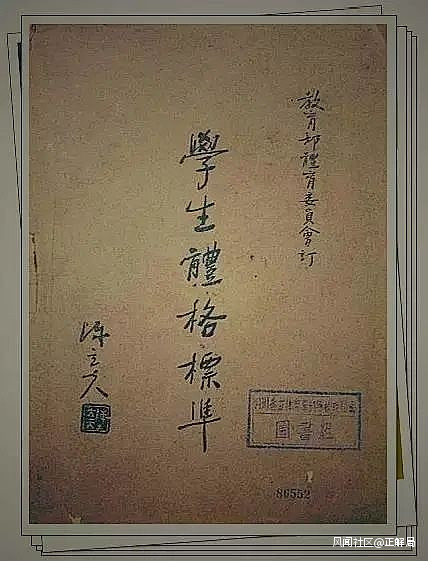 教育部體育委員會訂
學生體格標準
陳立夫
圖書組
86552
风闻社区@正解局